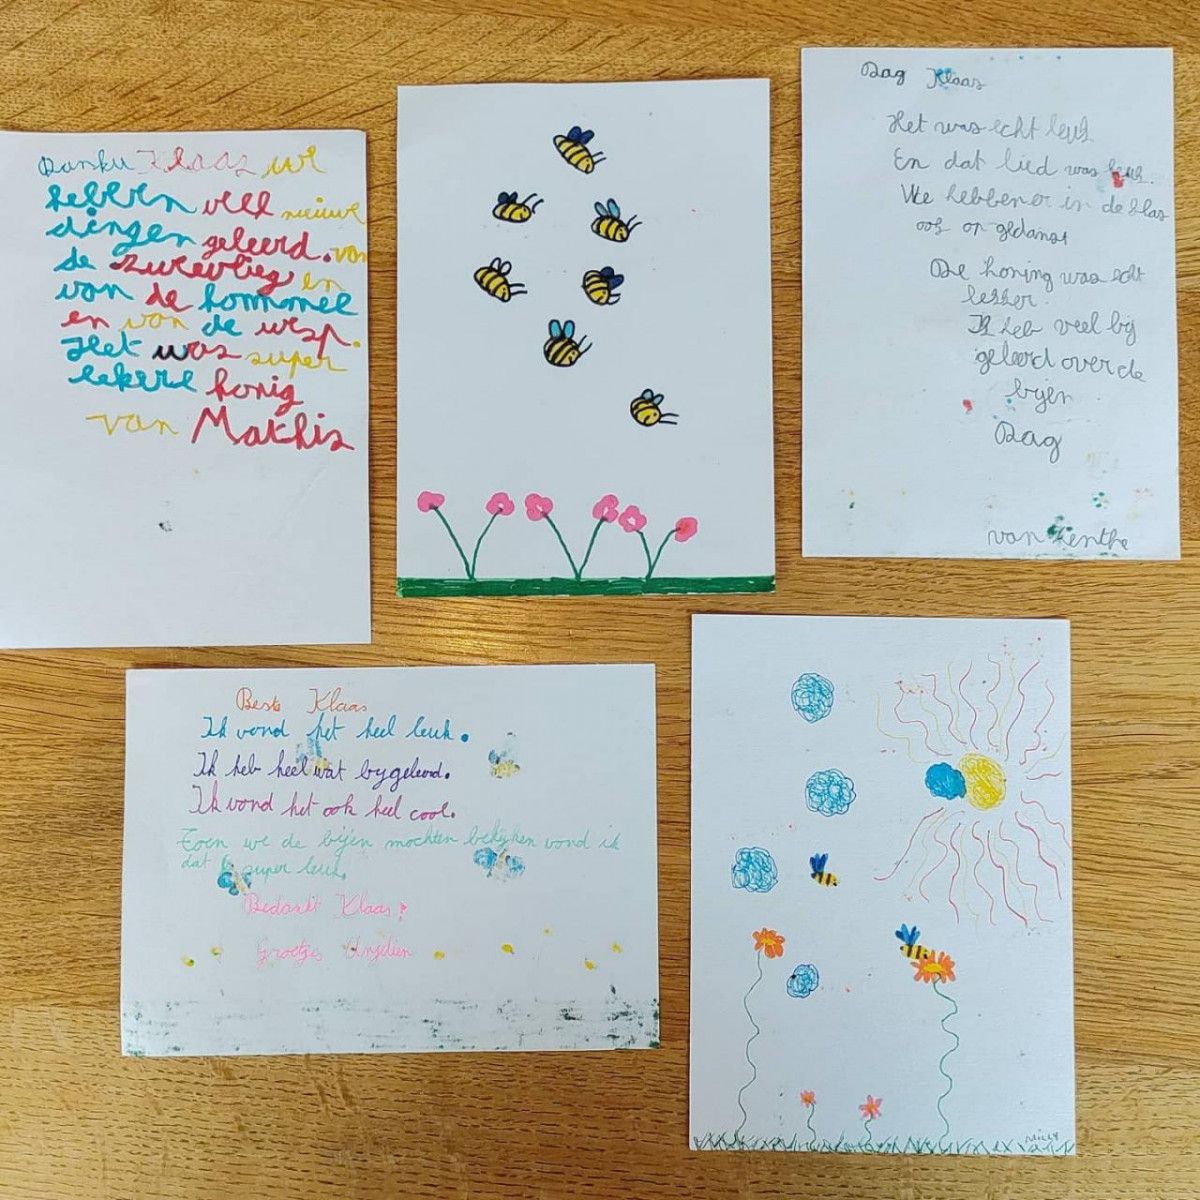 Danku Klaas we
hebben veel nieuwe
dingen geleerd. van
de zweevlieg en
van de hommel
en van de wesp.
Het was super
lekere honig
van Mathis
Dag Klaas
Het was echt leuk
En dat lied was leuk.
We hebben er in de klas
ook op gedanst
De honing was echt
lekker.
Ik heb veel bij
geleerd over de
bijen
Dag
van Lenthe
Beste Klaas
Ik vond het heel leuk.
Ik heb heel wat bygeleerd.
Ik vond het ook heel cool.
Toen we de bijen mochten bekijken vond ik
dat super leuk.
Bedankt Klaas!
Groetjes Anjelien
Milly